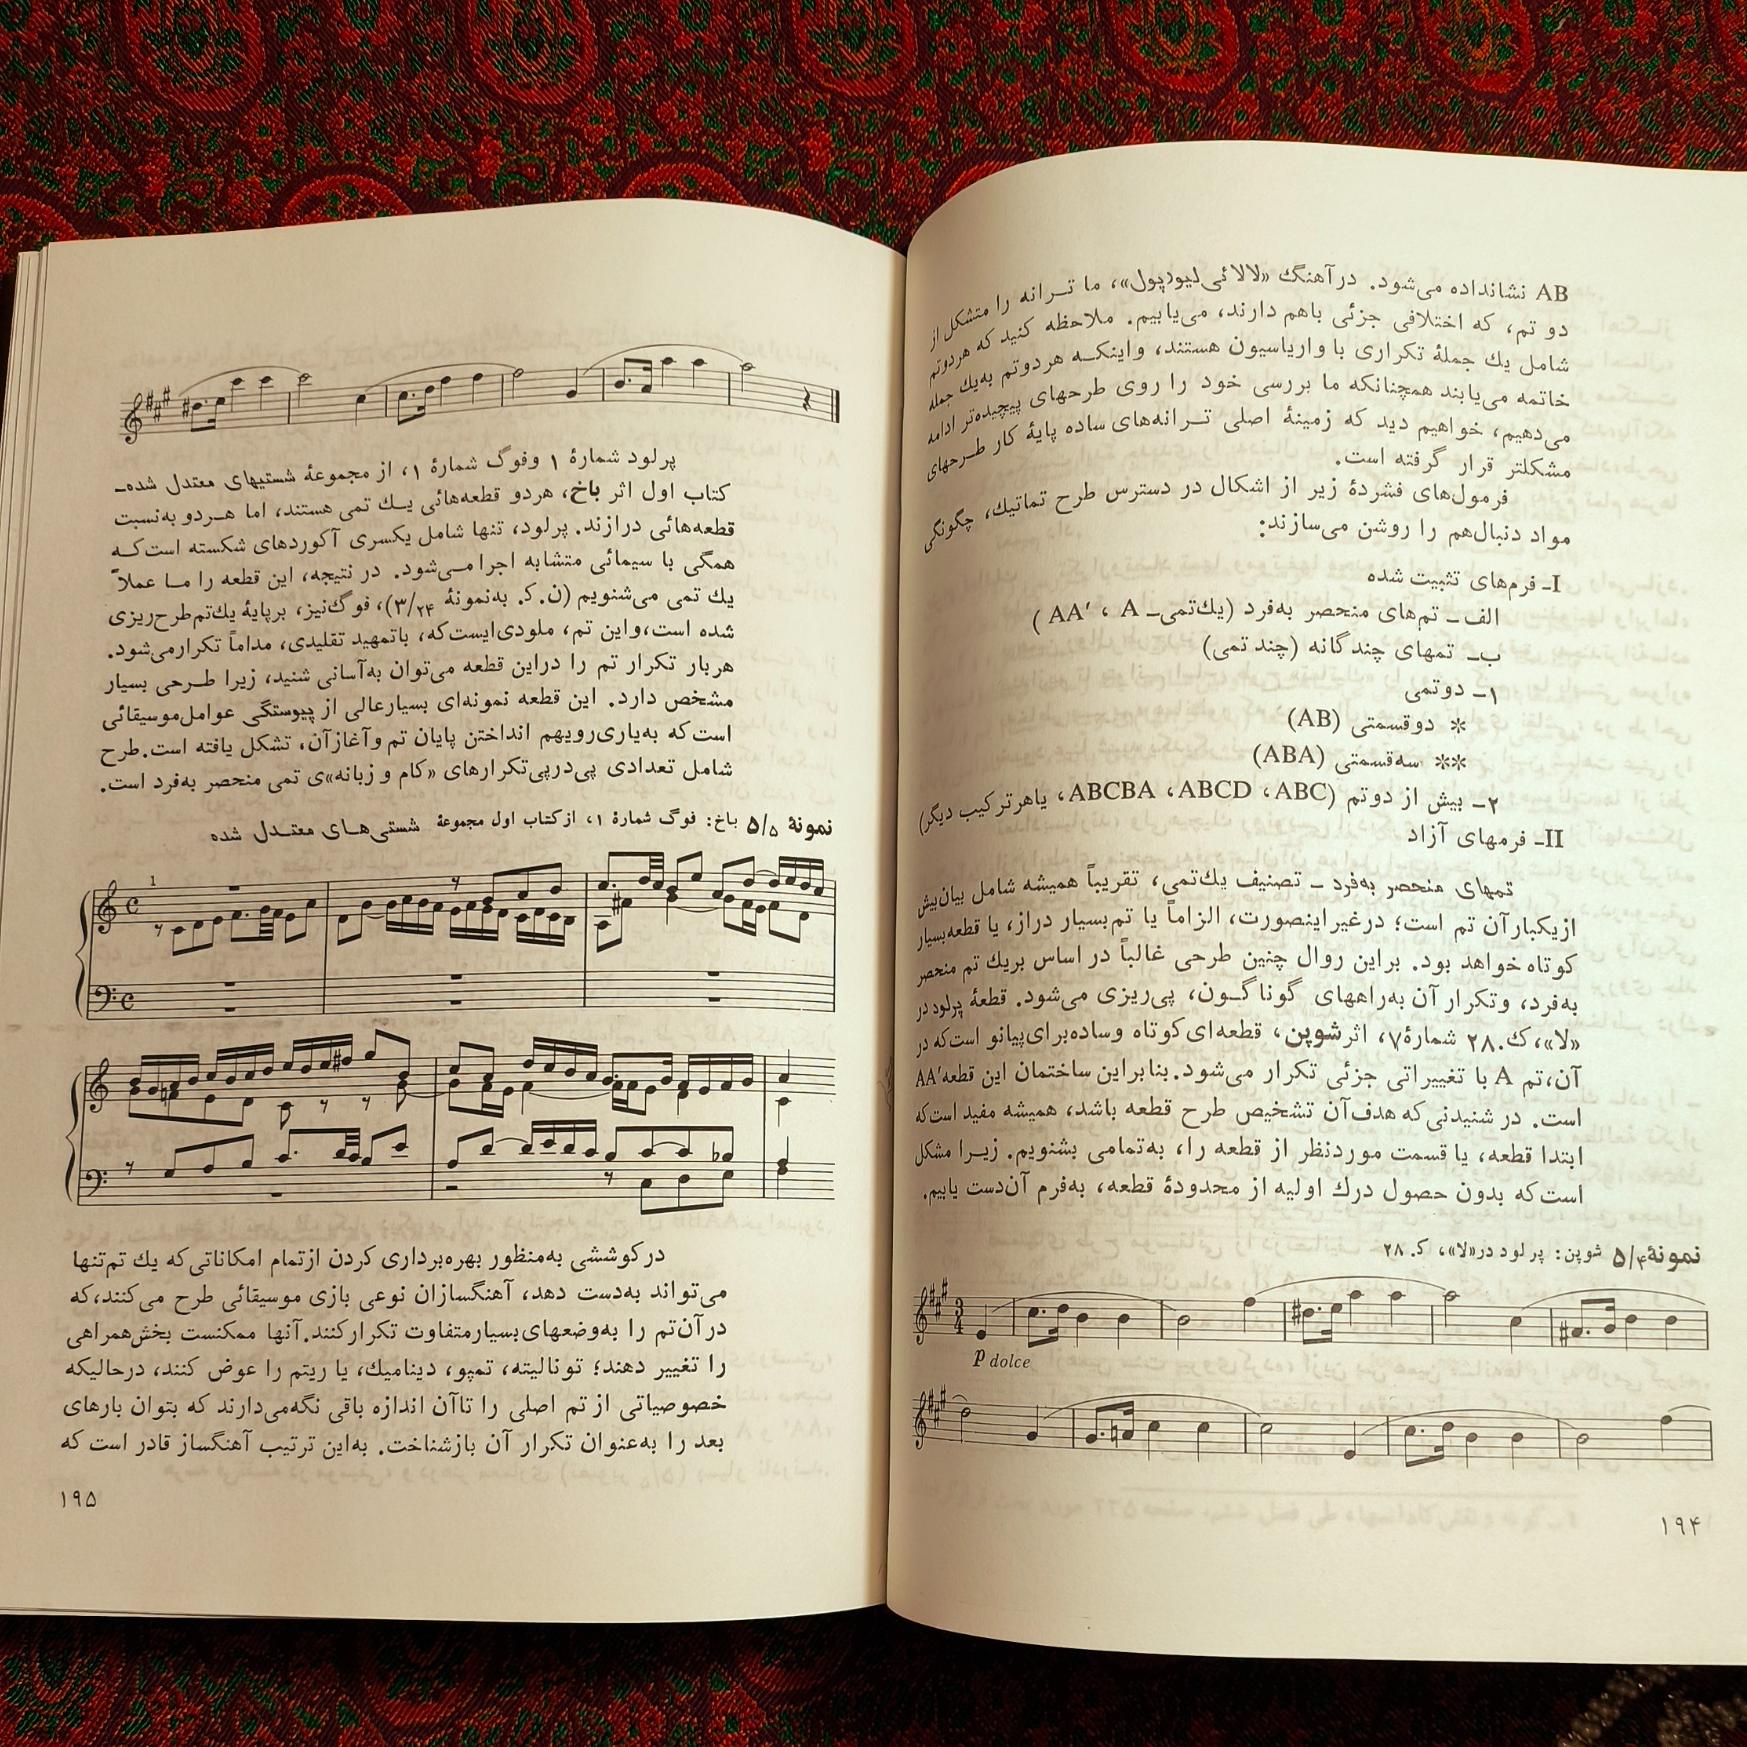 AB نشانداده می‌شود. درآهنگ «لالائی لیورپول»، ما تـرانه را متشکل از
دو تم، که اختلافی جزئی باهم دارند، می‌یابیم. ملاحظه کنید که هردوتم
شامل یك جملهٔ تکراری با واریاسیون هستند، واینکـه هردوتم به‌یك جمله
خاتمه می‌یابند همچنانکه ما بررسی خود را روی طرحهای پیچیده‌تر ادامه
می‌دهیم، خواهیم دید که زمینهٔ اصلی تـرانه‌های ساده پایهٔ کار طـرحهای
مشکلتر قرار گرفته است.
فرمول‌های فشردهٔ زیر از اشکال در دسترس طرح تماتیك، چگونگی
مواد دنبال‌هم را روشن می‌سازند:
I‌ـ فرم‌های تثبیت شده
الف ـ تم‌های منحصر به‌فرد (یك‌تمی‌ـ A ، AA′ )
ب‌ـ تمهای چندگانه (چند تمی)
۱ـ دوتمی
* دوقسمتی (AB)
** سه‌قسمتی (ABA)
۲ـ بیش از دوتم (ABC، ABCD، ABCBA، یاهرترکیب دیگر)
II‌ـ فرمهای آزاد
تمهای منحصر به‌فرد ـ تصنیف یك‌تمی، تقریباً همیشه شامل بیان‌بیش
ازیکبارآن تم است؛ درغیراینصورت، الزاماً یا تم‌بسیار دراز، یا قطعه‌بسیار
کوتاه خواهد بود. براین روال چنین طرحی غالباً در اساس بریك تم منحصر
به‌فرد، وتکرار آن به‌راههای گوناگـون، پی‌ریزی می‌شود. قطعهٔ پرلود در
«لا»، ك.۲۸ شمارهٔ۷، اثرشوپن، قطعه‌ای کوتاه وساده‌برای‌پیانو است‌که در
آن،تم A با تغییراتی جزئی تکرار می‌شود.بنابراین ساختمان این قطعه‌AA′
است. در شنیدنی که هدف‌آن تشخیص طرح قطعه باشد، همیشه مفید است‌که
ابتدا قطعه، یا قسمت موردنظر از قطعه را، به‌تمامی بشنویم. زیـرا مشکل
است‌که بدون حصول درك اولیه از محدودهٔ قطعه، به‌فرم آن‌دست یابیم.
نمونهٔ۵/۴ شوپن: پرلود در«لا»، ك. ۲۸
3
4
p dolce
۱۹۴
پرلود شمارهٔ ۱ وفوگ شمارهٔ ۱، از مجموعهٔ شستیهای معتدل شده‌ـ
کتاب اول اثر باخ، هردو قطعه‌هائی یـك تمی هستند، اما هـردو به‌نسبت
قطعه‌هائی درازند. پرلود، تنها شامل یکسری آکوردهای شکسته است‌کـه
همگی با سیمائی متشابه اجرا مـی‌شود. در نتیجه، این قطعه را مـا عملاً
یك تمی می‌شنویم (ن.ك. به‌نمونهٔ ۳/۲۴)، فوگ‌نیز، برپایهٔ یك‌تم‌طرح‌ریزی
شده است،واین تم، ملودی‌ایست‌که، باتمهید تقلیدی، مداماً تکرارمی‌شود.
هربار تکرار تم را دراین قطعه می‌توان به‌آسانی شنید، زیرا طـرحی بسیار
مشخص دارد. این قطعه نمونه‌ای بسیارعالی از پیوستگی عوامل‌موسیقائی
است‌که به‌یاری‌رویهم انداختن پایان تم وآغازآن، تشکل یافته است.طرح
شامل تعدادی پی‌درپی‌تکرارهای «کام و زبانه»‌ی تمی منحصر به‌فرد است.
نمونهٔ ۵/۵ باخ: فوگ شمارهٔ ۱، ازکتاب اول مجموعهٔ شستی‌هـای معتـدل شده
1
درکوششی به‌منظور بهره‌برداری کردن ازتمام امکاناتی‌که یك تم‌تنها
می‌تواند به‌دست دهد، آهنگسازان نوعی بازی موسیقائی طرح می‌کنند،که
درآن‌تم را به‌وضعهای‌بسیارمتفاوت تکرارکنند.آنها ممکنست بخش‌همراهی
را تغییر دهند؛ تونالیته، تمپو، دینامیك، یا ریتم را عوض کنند، درحالیکه
خصوصیاتی از تم اصلی را تاآن اندازه باقی نگه‌می‌دارند که بتوان بارهای
بعد را به‌عنوان تکرار آن بازشناخت. به‌این ترتیب آهنگساز قادر است که
۱۹۵